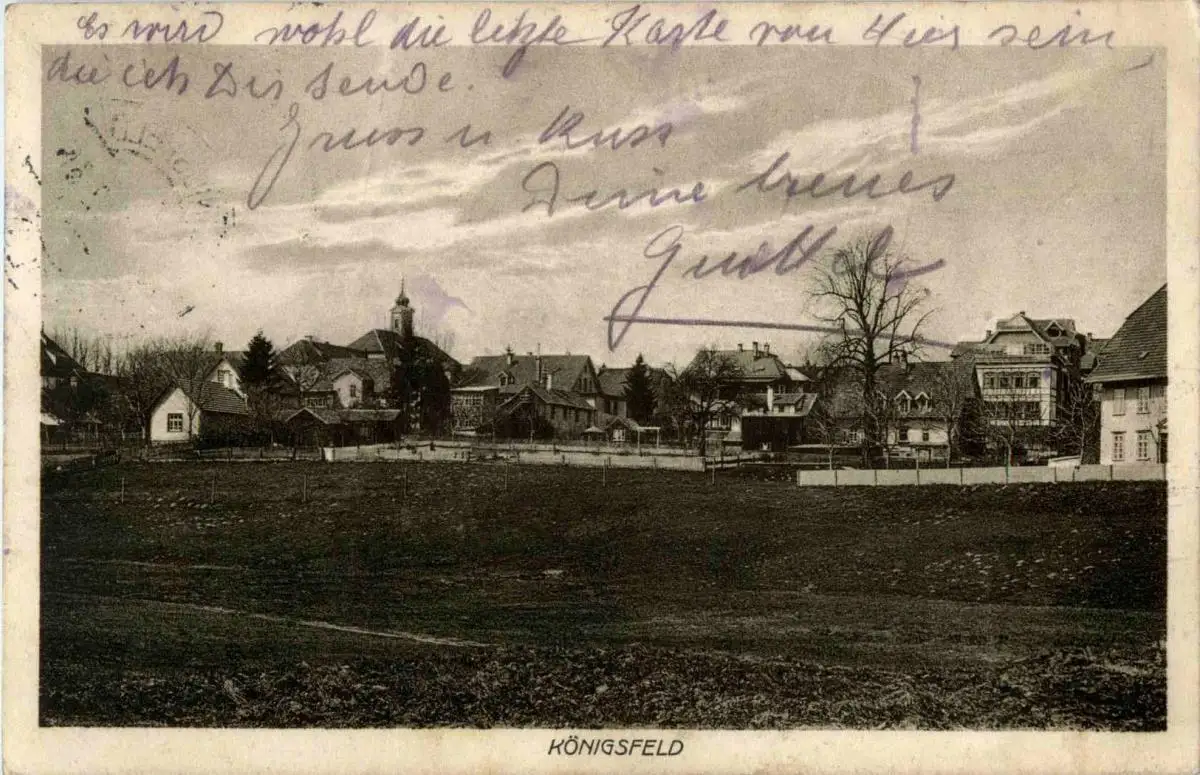 Es wird wohl die letzte Karte von Hier sein
die ich Dir sende.
Gruss u Kuss
Deine
KÖNIGSFELD